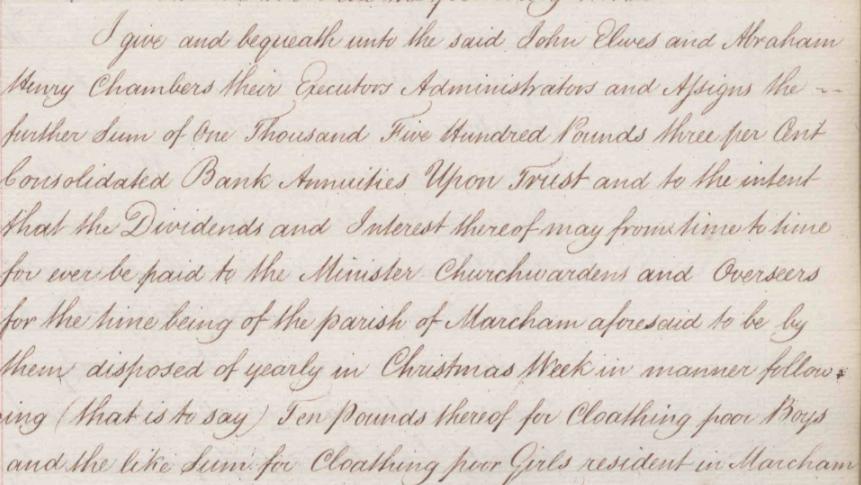 I give and bequeath unto the said John Elwes and Abraham
Henry Chambers their Executors Administrators and Assigns the --
further Sum of One Thousand Five Hundred Pounds three per Cent
Consolidated Bank Annuities Upon Trust and to the intent
that the Dividends and Interest thereof may from time to time
for ever be paid to the Minister Churchwardens and Overseers
for the time being of the parish of Marcham aforesaid to be by
them disposed of yearly in Christmas Week in manner follow=
ing (that is to say) Ten pounds thereof for Cloathing poor Boys
and the like Sum for Cloathing poor Girls resident in Marcham